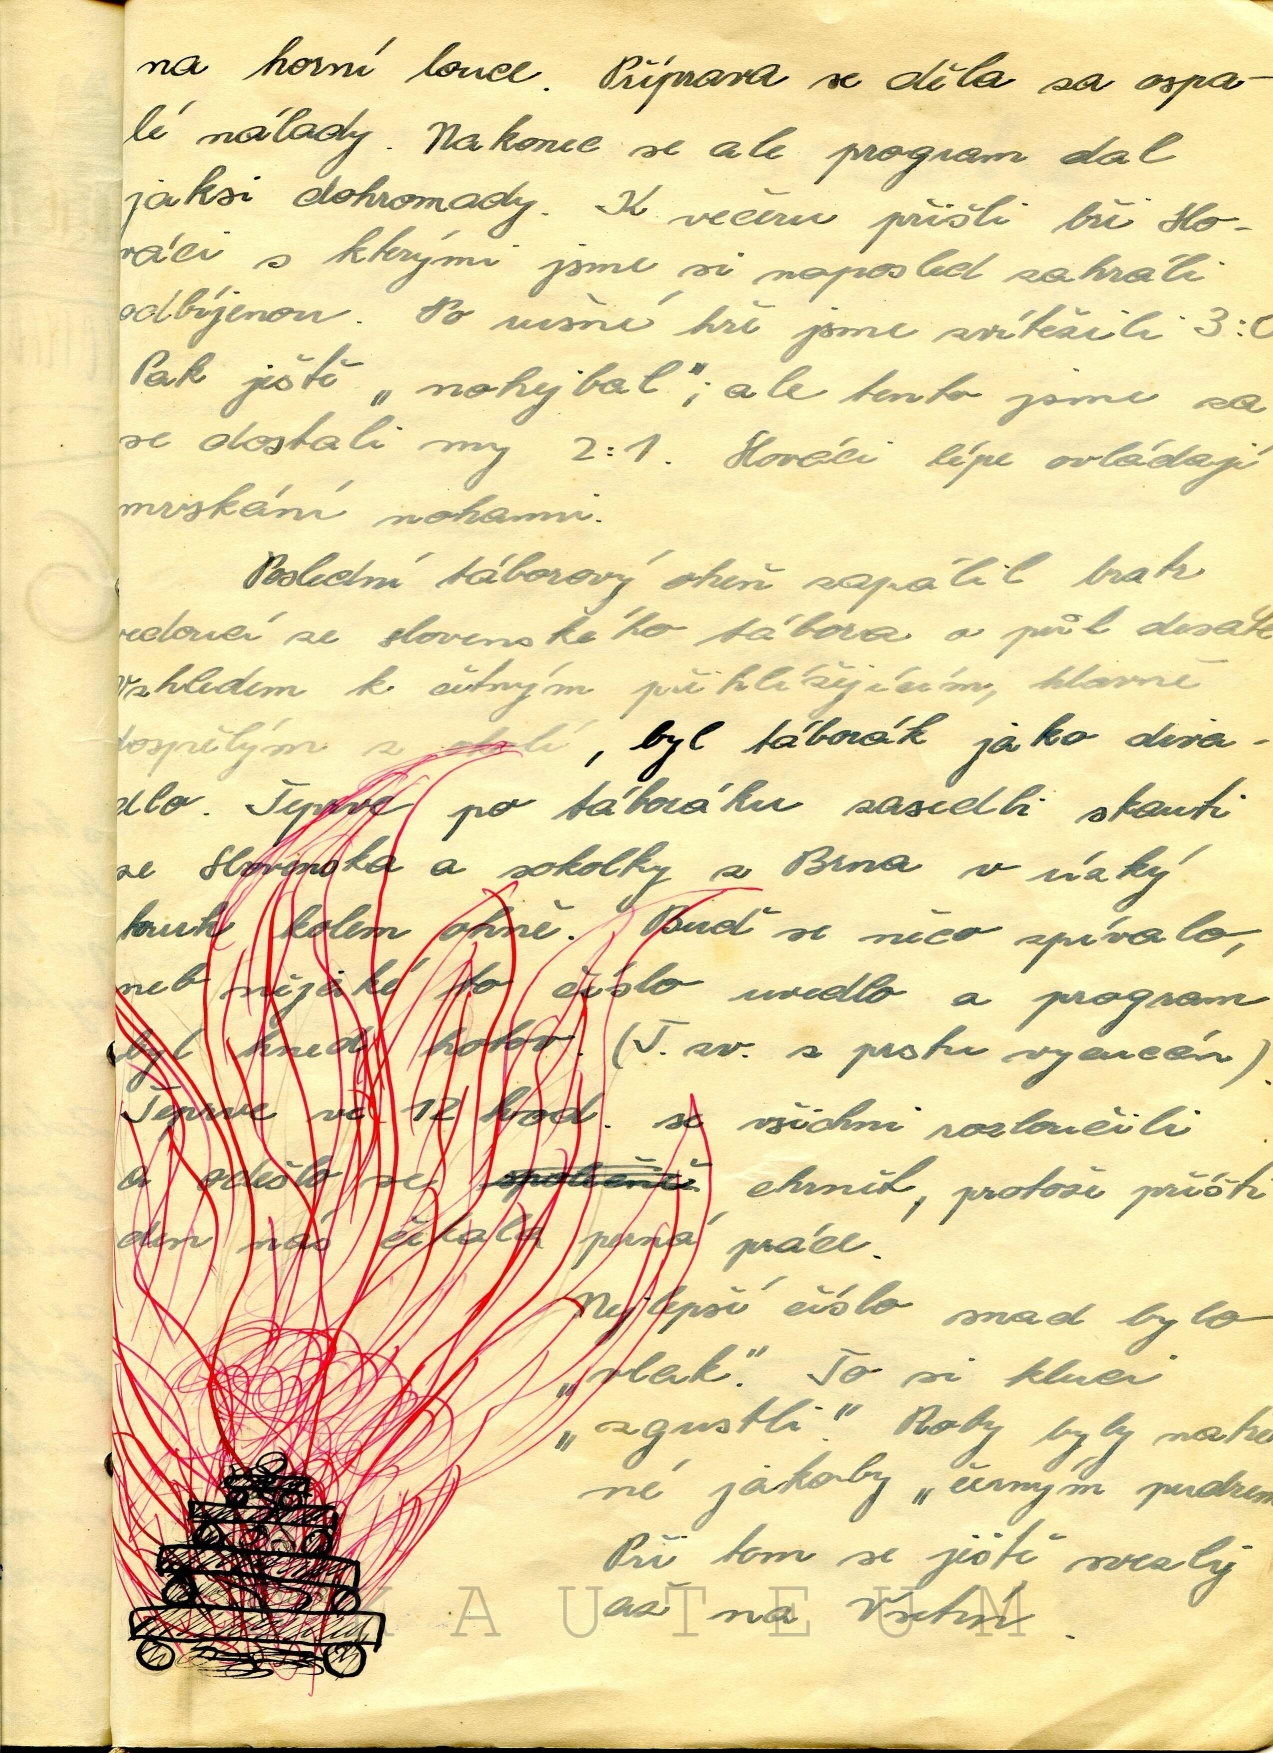 na horní louce. Příprava se děla za ospa-
lé nálady. Nakonec se ale program dal
jaksi dohromady. K večeru přišli bří Slo-
váci s kterými jsme si naposled zahráli
odbíjenou. Po uršné hře jsme zvítězili 3:0
Pak ještě „nohejbal", ale tento jsme za
se dostali my 2:1. Slováci lépe ovládají
mrskání nohami.
Poslední táborový oheň zapálil bratr
vedoucí ze slovenského tábora o půl desáté
Vzhledem k četným přihlížejícím, hlavně
dospělým z okolí, byl táborák jako diva-
dlo. Teprve po táboráku zasedli skauti
ze Slovenska a sokolky z Brna v úzký
kruh kolem ohně. Buď se něco zpívalo,
neb nějaké to číslo uvedlo a program
byl hned hotov. (T. zv. z prstu vycucán)
Teprve ve 12 hod. se všichni rozloučili
a odešlo se společně chrnět, protože příští
den nás čekala perná práce.
Nejlepší číslo snad bylo
„vlak". To si kluci
„zgustli". Roby byly natře
né jakoby „černým pudrem
Při tom se ještě svezly
až na Vsetín.
KAUTEUM